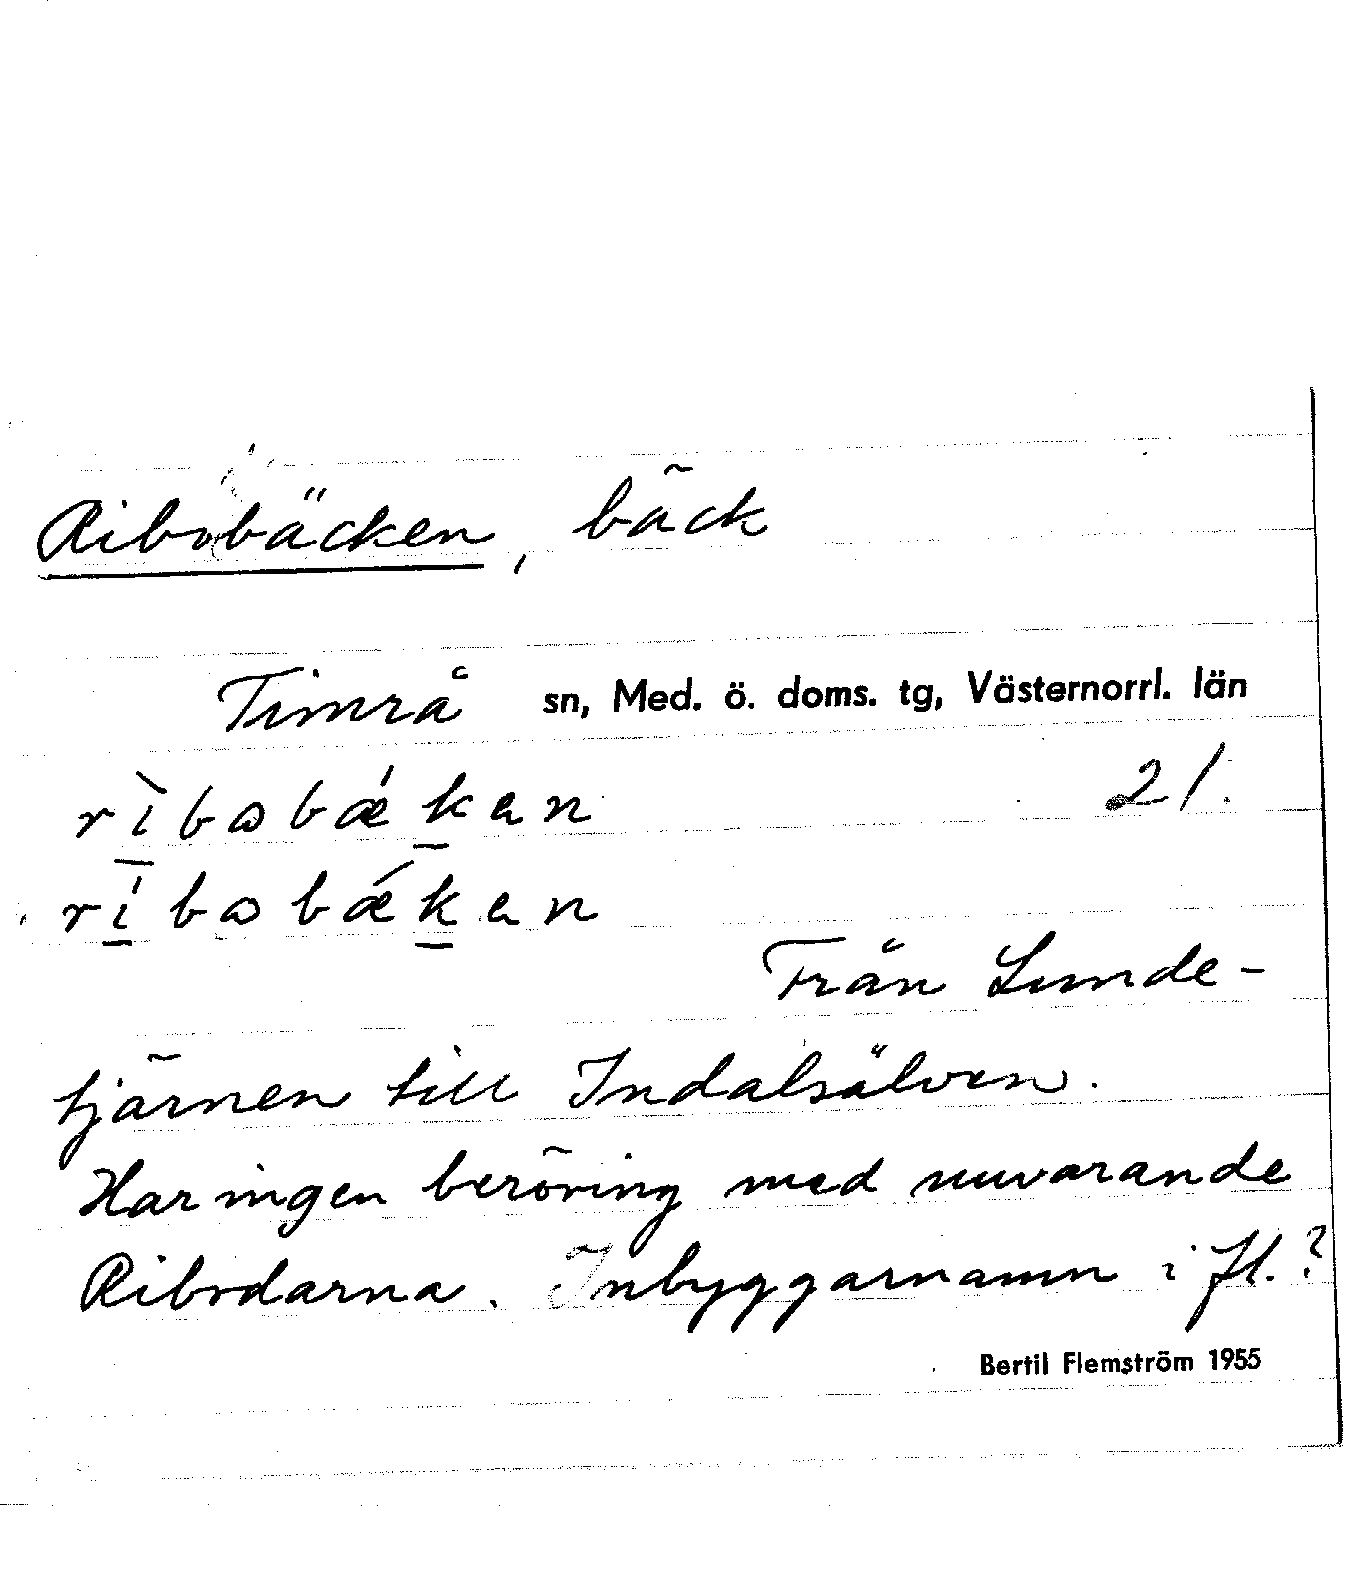 Ribobäcken, bäck
Timrå sn, Med. ö. doms. tg, Västernorrl. län
rìbɷbǽken 21.
ríbɷbǽken
Från Lunde-
tjärnen till Indalsälven.
Har ingen beröring med nuvarande
Ribodarna. Inbyggarnamn i fl.?
Bertil Flemström 1955